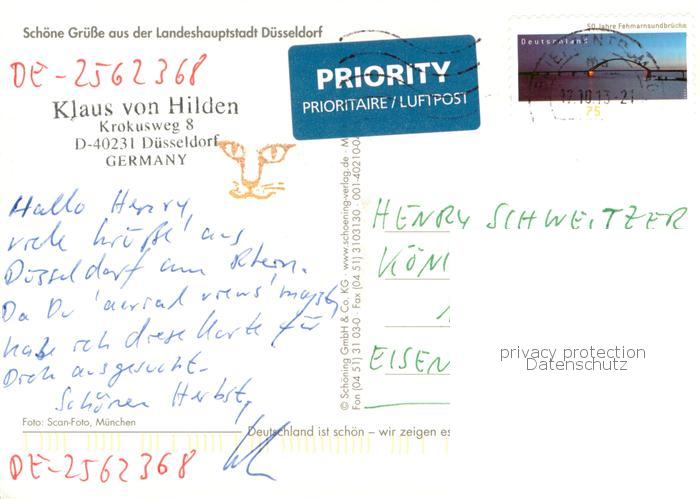 Schöne Grüße aus der Landeshauptstadt Düsseldorf
DE-2562368
Klaus von Hilden
Krokusweg 8
D-40231 Düsseldorf
GERMANY
PRIORITY
PRIORITAIRE / LUFTPOST
50 Jahre Fehmarnsundbrücke
Deutschland
12.10.13-21
75
Hallo Henry,
viele Grüße aus
Düsseldorf am Rhein.
Da Du 'aerial views' magst,
habe ich diese Karte für
Dich ausgesucht.
Schönen Herbst,
Foto: Scan-Foto, München
DE-2562368
© Schöning GmbH & Co. KG · www.schoening-verlag.de
Fon (04 51) 31 03-0 · Fax (04 51) 3103130 · 001-40210-0
Deutschland ist schön – wir zeigen es
HENRY SCHWEITZER
KÖNI
EISEN
privacy protection
Datenschutz